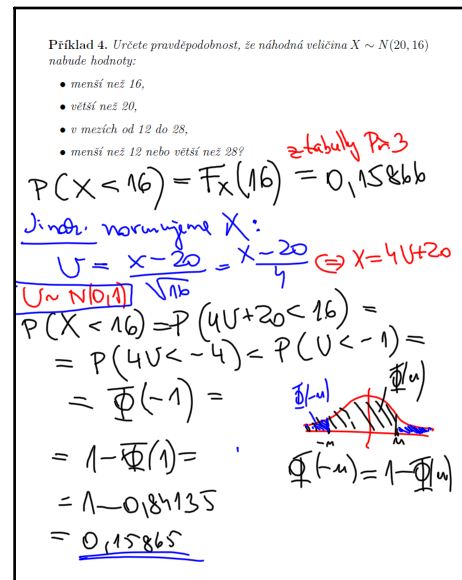 Příklad 4. Určete pravděpodobnost, že náhodná veličina X ∼ N(20, 16)
nabude hodnoty:
• menší než 16,
• větší než 20,
• v mezích od 12 do 28,
• menší než 12 nebo větší než 28?
z tabulky Př 3
P(X < 16) = F_X(16) = 0,15866
Jinak: normujeme X:
U = (X-20)/√16 = (X-20)/4 ⇔ X=4U+20
U∼ N(0,1)
P(X < 16) = P(4U+20 < 16) =
= P(4U < -4) = P(U < -1) =
= Φ(-1) =
Φ(-u) Φ(u)
-u u
= 1-Φ(1) =
Φ(-u) = 1-Φ(u)
= 1-0,84135
= 0,15865